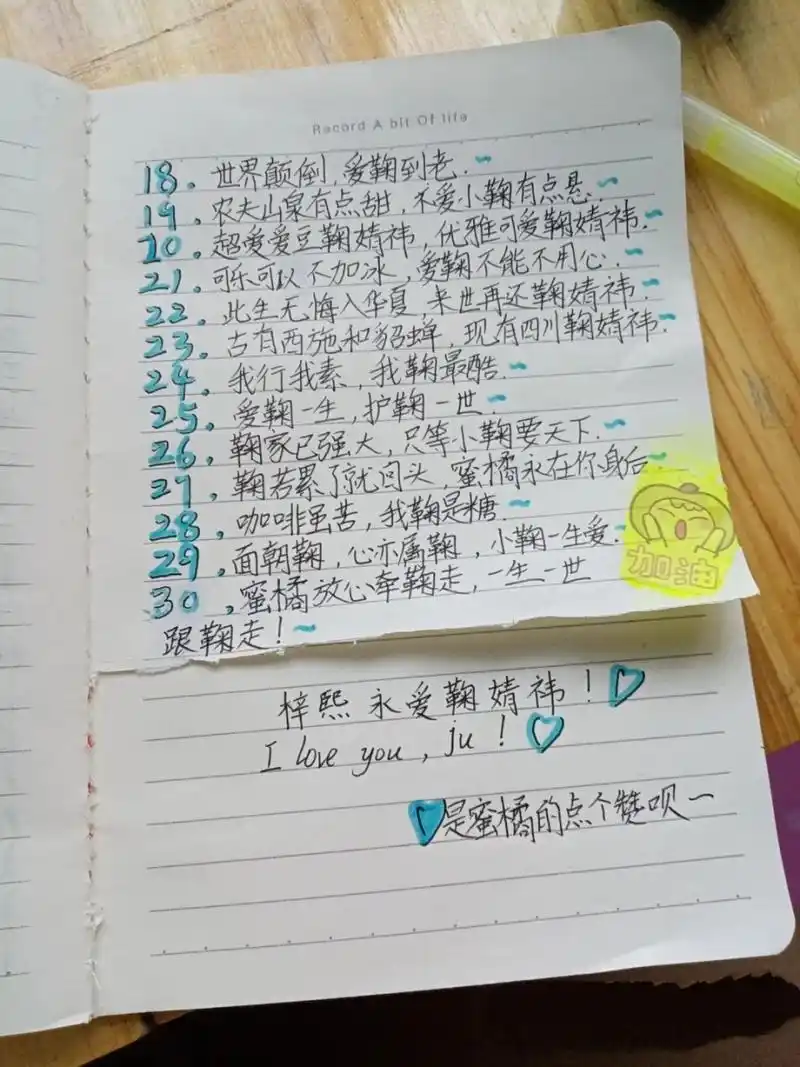 Record A bit Of life
18. 世界颠倒，爱鞠到老.~
19. 农夫山泉有点甜，不爱小鞠有点悬.~
20. 超爱爱豆鞠婧祎，优雅可爱鞠婧祎.~
21. 可乐可以不加冰，爱鞠不能不用心.~
22. 此生无悔入华夏，来世再还鞠婧祎.~
23. 古有西施和貂蝉，现有四川鞠婧祎.~
24. 我行我素，我鞠最酷.~
25. 爱鞠一生，护鞠一世.~
26. 鞠家已强大，只等小鞠要天下.~
27. 鞠若累了就回头，蜜橘永在你身后~
28. 咖啡虽苦，我鞠是糖.~
29. 面朝鞠，心亦属鞠，小鞠一生爱.~
加油
30. 蜜橘放心牵鞠走，一生一世
跟鞠走！~
梓熙永爱鞠婧祎！
I love you, ju！
是蜜橘的点个赞呗~